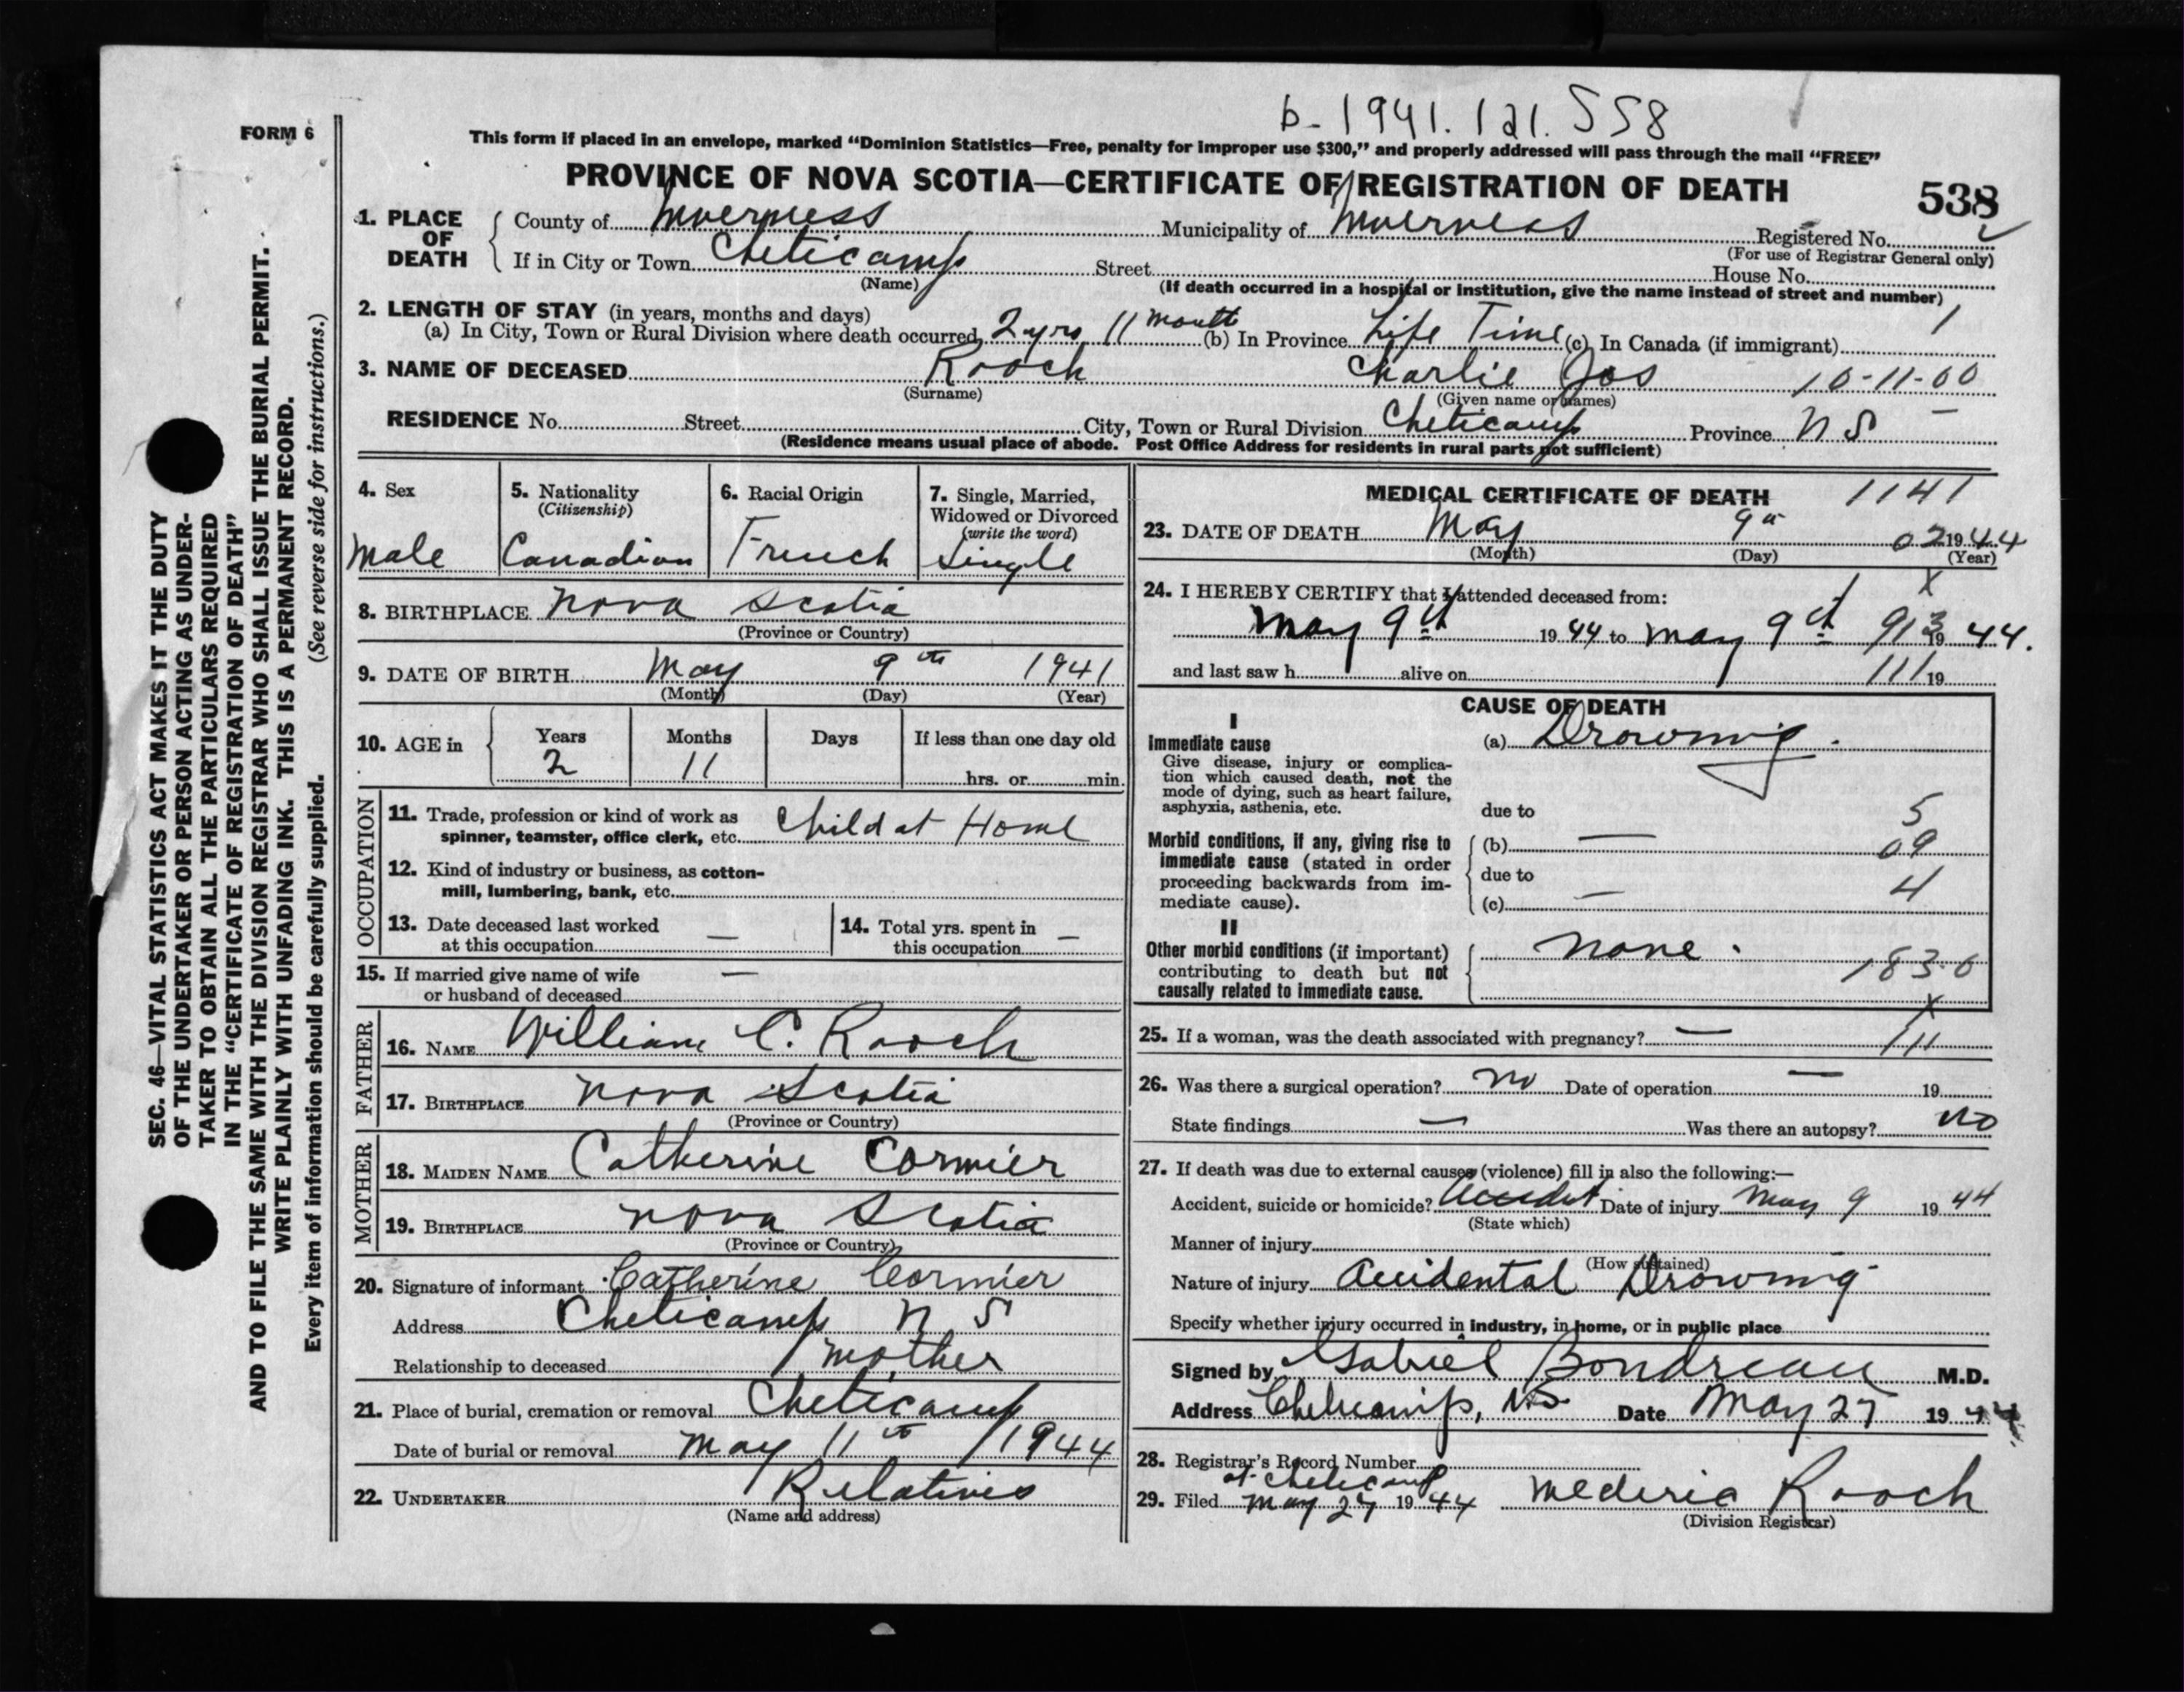 b-1941.121.558
FORM 6
This form if placed in an envelope, marked “Dominion Statistics—Free, penalty for improper use $300,” and properly addressed will pass through the mail “FREE”
PROVINCE OF NOVA SCOTIA—CERTIFICATE OF REGISTRATION OF DEATH
538
1. PLACE OF DEATH
County of Inverness Municipality of Inverness Registered No.
(For use of Registrar General only)
If in City or Town Cheticamp Street House No.
(Name) (If death occurred in a hospital or institution, give the name instead of street and number)
2. LENGTH OF STAY (in years, months and days) 1
(a) In City, Town or Rural Division where death occurred 2 yrs 11 month (b) In Province Life Time (c) In Canada (if immigrant)
3. NAME OF DECEASED Rooch Charlie Jos 10-11-00
(Surname) (Given name or names)
RESIDENCE No. Street City, Town or Rural Division Cheticamp Province N S
(Residence means usual place of abode. Post Office Address for residents in rural parts not sufficient)
4. Sex
Male
5. Nationality
(Citizenship)
Canadian
6. Racial Origin
French
7. Single, Married,
Widowed or Divorced
(write the word)
Single
8. BIRTHPLACE Nova Scotia
(Province or Country)
9. DATE OF BIRTH May 9th 1941
(Month) (Day) (Year)
10. AGE in Years Months Days If less than one day old
2 11 hrs. or min.
OCCUPATION
11. Trade, profession or kind of work as
spinner, teamster, office clerk, etc. Child at Home
12. Kind of industry or business, as cotton-
mill, lumbering, bank, etc.
13. Date deceased last worked
at this occupation —
14. Total yrs. spent in
this occupation —
15. If married give name of wife —
or husband of deceased
FATHER
16. NAME William C. Rooch
17. BIRTHPLACE Nova Scotia
(Province or Country)
MOTHER
18. MAIDEN NAME Catherine Cormier
19. BIRTHPLACE Nova Scotia
(Province or Country)
20. Signature of informant Catherine Cormier
Address Cheticamp N S
Relationship to deceased mother
21. Place of burial, cremation or removal Cheticamp
Date of burial or removal May 11th 1944
22. UNDERTAKER Relatives
(Name and address)
MEDICAL CERTIFICATE OF DEATH 1141
23. DATE OF DEATH May 9th 02 1944
(Month) (Day) (Year)
24. I HEREBY CERTIFY that I attended deceased from: X
May 9th 1944 to May 9th 913 1944.
and last saw h alive on 111 19
CAUSE OF DEATH
I
Immediate cause (a) Drowning.
Give disease, injury or complica-
tion which caused death, not the
mode of dying, such as heart failure,
asphyxia, asthenia, etc. due to 5
Morbid conditions, if any, giving rise to (b) — 09
immediate cause (stated in order
proceeding backwards from im- due to 4
mediate cause). (c) —
II
Other morbid conditions (if important) none.
contributing to death but not 183.0
causally related to immediate cause. X
25. If a woman, was the death associated with pregnancy? — 111
26. Was there a surgical operation? No Date of operation — 19
State findings — Was there an autopsy? No
27. If death was due to external causes (violence) fill in also the following:—
Accident, suicide or homicide? Accident Date of injury May 9 1944
(State which)
Manner of injury
(How sustained)
Nature of injury Accidental Drowning
Specify whether injury occurred in industry, in home, or in public place
Signed by Gabriel Boudreau M.D.
Address Cheticamp, N.S. Date May 27 1944
28. Registrar's Record Number
at Cheticamp
29. Filed May 27 1944 Mederic Rooch
(Division Registrar)
SEC. 46—VITAL STATISTICS ACT MAKES IT THE DUTY
OF THE UNDERTAKER OR PERSON ACTING AS UNDER-
TAKER TO OBTAIN ALL THE PARTICULARS REQUIRED
IN THE “CERTIFICATE OF REGISTRATION OF DEATH”
AND TO FILE THE SAME WITH THE DIVISION REGISTRAR WHO SHALL ISSUE THE BURIAL PERMIT.
WRITE PLAINLY WITH UNFADING INK. THIS IS A PERMANENT RECORD.
Every item of information should be carefully supplied. (See reverse side for instructions.)